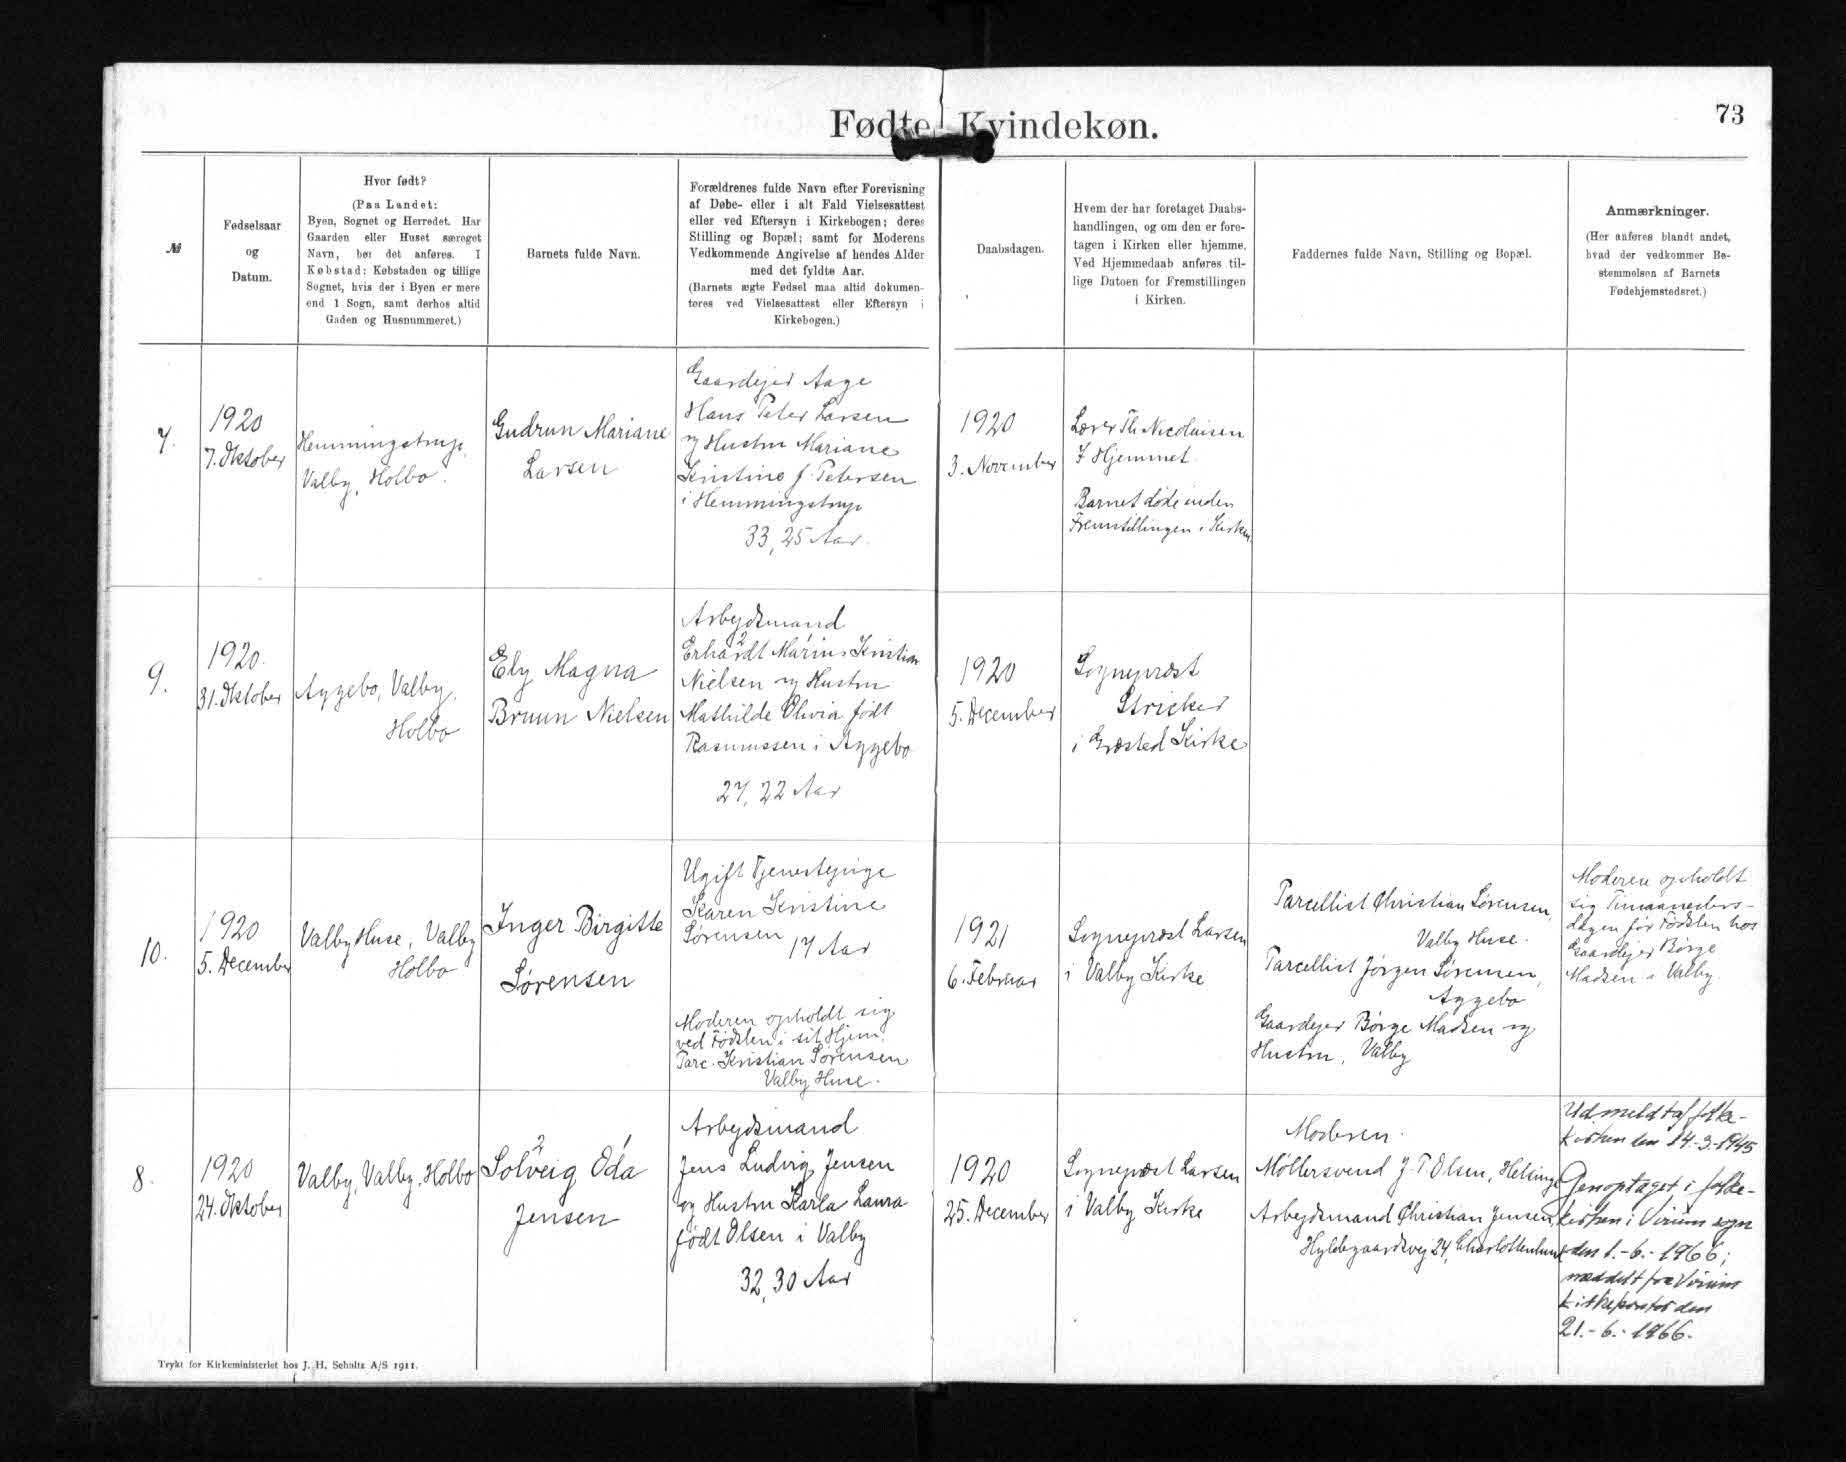 Fødte Kvindekøn.
73
№
Fødselsaar
og
Datum.
Hvor født?
(Paa Landet:
Byen, Sognet og Herredet. Har
Gaarden eller Huset særeget
Navn, bør det anføres. I
Købstad: Købstaden og tillige
Sognet, hvis der i Byen er mere
end 1 Sogn, samt derhos altid
Gaden og Husnummeret.)
Barnets fulde Navn.
Forældrenes fulde Navn efter Forevisning
af Døbe- eller i alt Fald Vielsesattest
eller ved Eftersyn i Kirkebogen; deres
Stilling og Bopæl; samt for Moderens
Vedkommende Angivelse af hendes Alder
med det fyldte Aar.
(Barnets ægte Fødsel maa altid dokumen-
teres ved Vielsesattest eller Eftersyn i
Kirkebogen.)
Daabsdagen.
Hvem der har foretaget Daabs-
handlingen, og om den er fore-
tagen i Kirken eller hjemme.
Ved Hjemmedaab anføres til-
lige Datoen for Fremstillingen
i Kirken.
Faddernes fulde Navn, Stilling og Bopæl.
Anmærkninger.
(Her anføres blandt andet,
hvad der vedkommer Be-
stemmelsen af Barnets
Fødehjemstedsret.)
7.
1920
7. Oktober
Hemmingstrup,
Valby, Holbo.
Gudrun Mariane
Larsen
Gaardejer Aage
Hans Peter Larsen
og Hustru Mariane
Kristine f. Petersen
i Hemmingstrup
33, 25 Aar.
1920
3. November
Lærer Th. Nicolaisen
I Hjemmet.
Barnet døde inden
Fremstillingen i Kirken.
9.
1920.
31. Oktober
Aggebo, Valby,
Holbo
Ely Magna
Bruun Nielsen
Arbejdsmand
2
Erhardt Marius Kristian
Nielsen og Hustru
Mathilde Olivia født
Rasmussen i Aggebo
27, 22 Aar
1920
5. December
Sognepræst
Stricker
i Græsted Kirke
10.
1920
5. December
Valby Huse, Valby
Holbo
Inger Birgitte
Sørensen
Ugift Tjenestepige
Karen Kristine
Sørensen
17 Aar
Moderen opholdt sig
ved Fødslen i sit Hjem.
Parc. Kristian Sørensen
Valby Huse.
1921
6. Februar
Sognepræst Larsen
i Valby Kirke
Parcellist Christian Sørensen,
Valby Huse.
Parcellist Jørgen Sørensen,
Aggebo
Gaardejer Børge Madsen og
Hustru, Valby
Moderen opholdt
sig Timaaneders-
dagen før Fødslen hos
Gaardejer Børge
Madsen i Valby.
8.
1920
24. Oktober
Valby, Valby, Holbo
2
Solveig Oda
Jensen
Arbejdsmand
Jens Ludvig Jensen
og Hustru Karla Laura
født Olsen i Valby
32, 30 Aar
1920
25. December
Sognepræst Larsen
i Valby Kirke
Moderen.
Møllersvend J. P. Olsen, Helsinge
Arbejdsmand Christian Jensen,
Hyldegaardsvej 24, Charlottenlund
Udmeldt af folke-
kirken den 14.-3.-1945
Genoptaget i folke-
kirken i Virum sogn
den 1.-6.-1966;
meddelt fra Virum
kirkekontor den
21.-6.-1966.
Trykt for Kirkeministeriet hos J. H. Schultz A/S 1911.